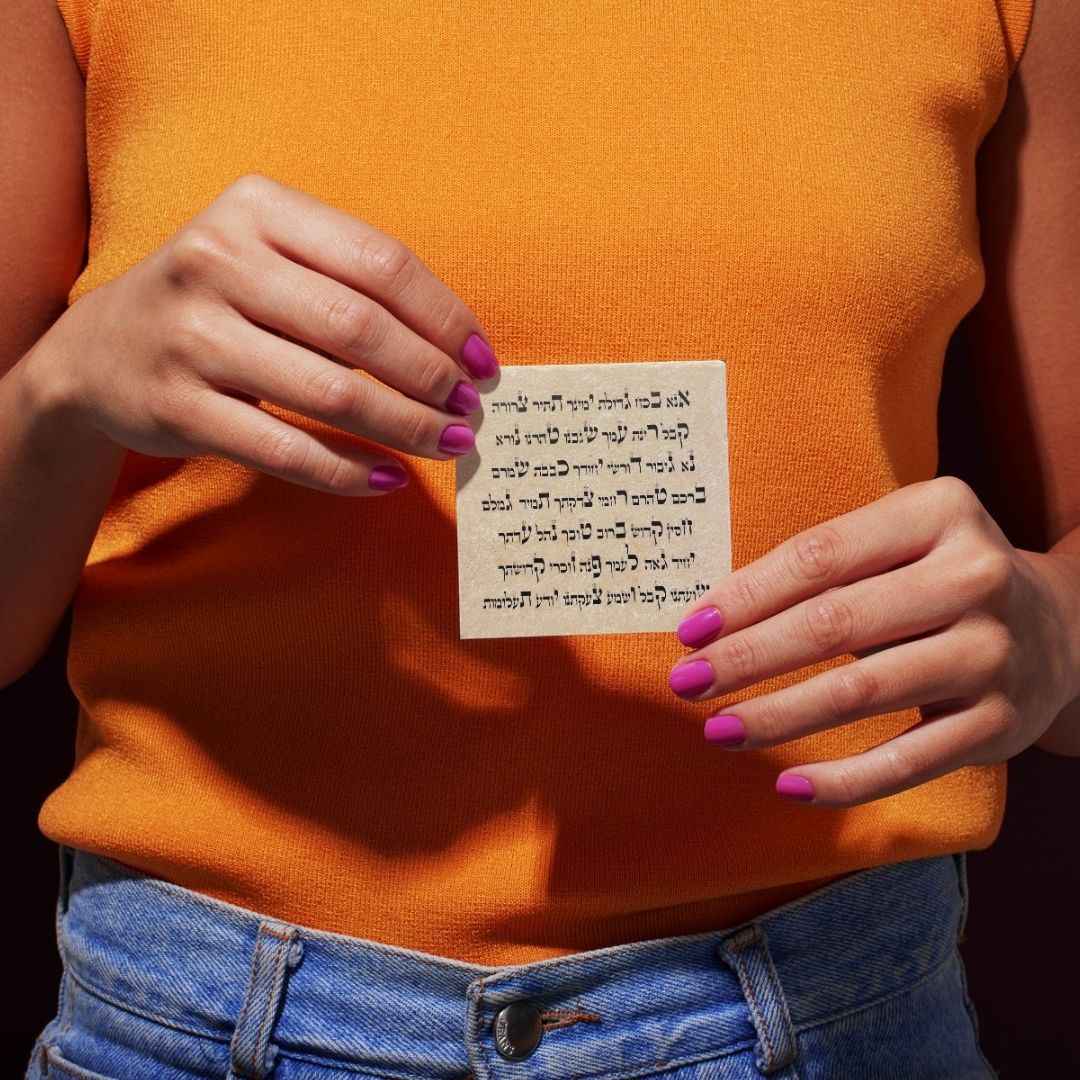 אנא בכח גדולת ימינך תתיר צרורה
קבל רינת עמך שגבנו טהרנו נורא
נא גיבור דורשי יחודך כבבת שמרם
ברכם טהרם רחמי צדקתך תמיד גמלם
חסין קדוש ברוב טובך נהל עדתך
יחיד גאה לעמך פנה זוכרי קדושתך
שועתנו קבל ושמע צעקתנו יודע תעלומות